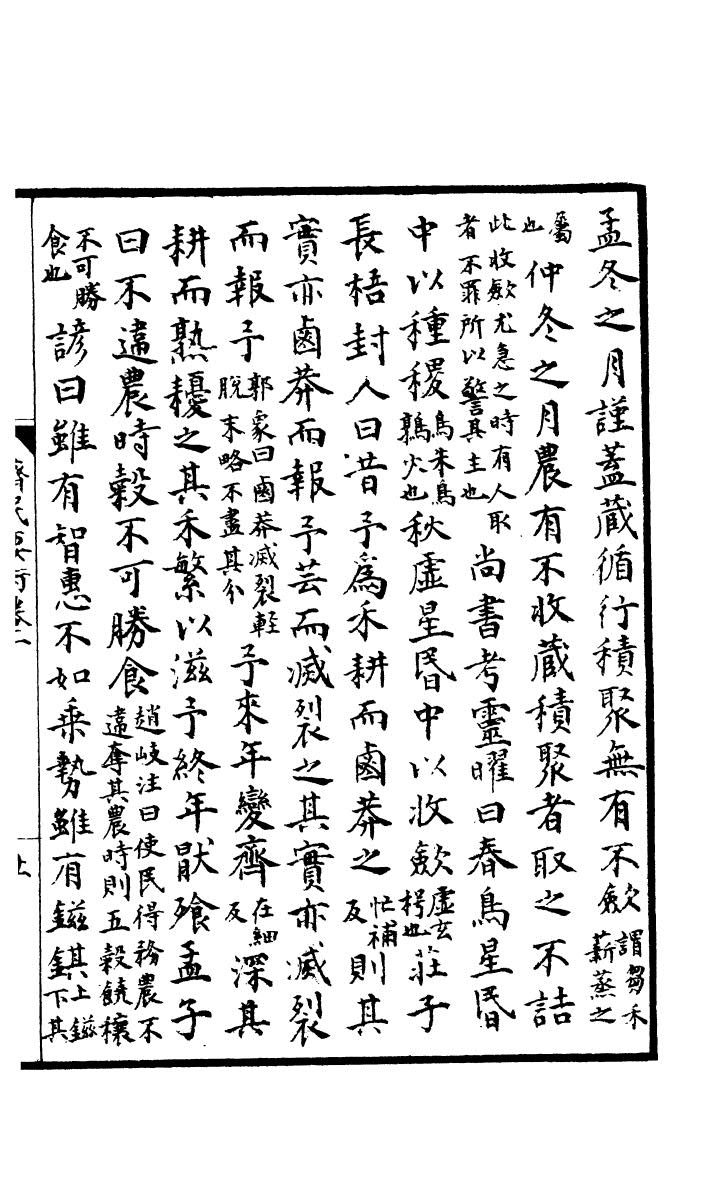 孟冬之月謹蓋藏循行積聚無有不斂謂芻禾薪蒸之
屬也仲冬之月農有不收藏積聚者取之不詰
此收斂尤急之時有人取者不罪所以警其主也尚書考靈曜曰春鳥星昏
中以種稷鳥朱鳥鶉火也秋虛星昏中以收斂虛玄枵也莊子
長梧封人曰昔予爲禾耕而鹵莽之忙補反則其
實亦鹵莽而報予芸而滅裂之其實亦滅裂
而報予郭象曰鹵莽滅裂輕脫末略不盡其分予來年變齊在細反深其
耕而熟耰之其禾繁以滋予終年猒飧孟子
曰不違農時穀不可勝食趙岐注曰使民得務農不違奪其農時則五穀饒穰
不可勝食也諺曰雖有智惠不如乘勢雖有鎡錤上鎡下其
齊民要術卷二